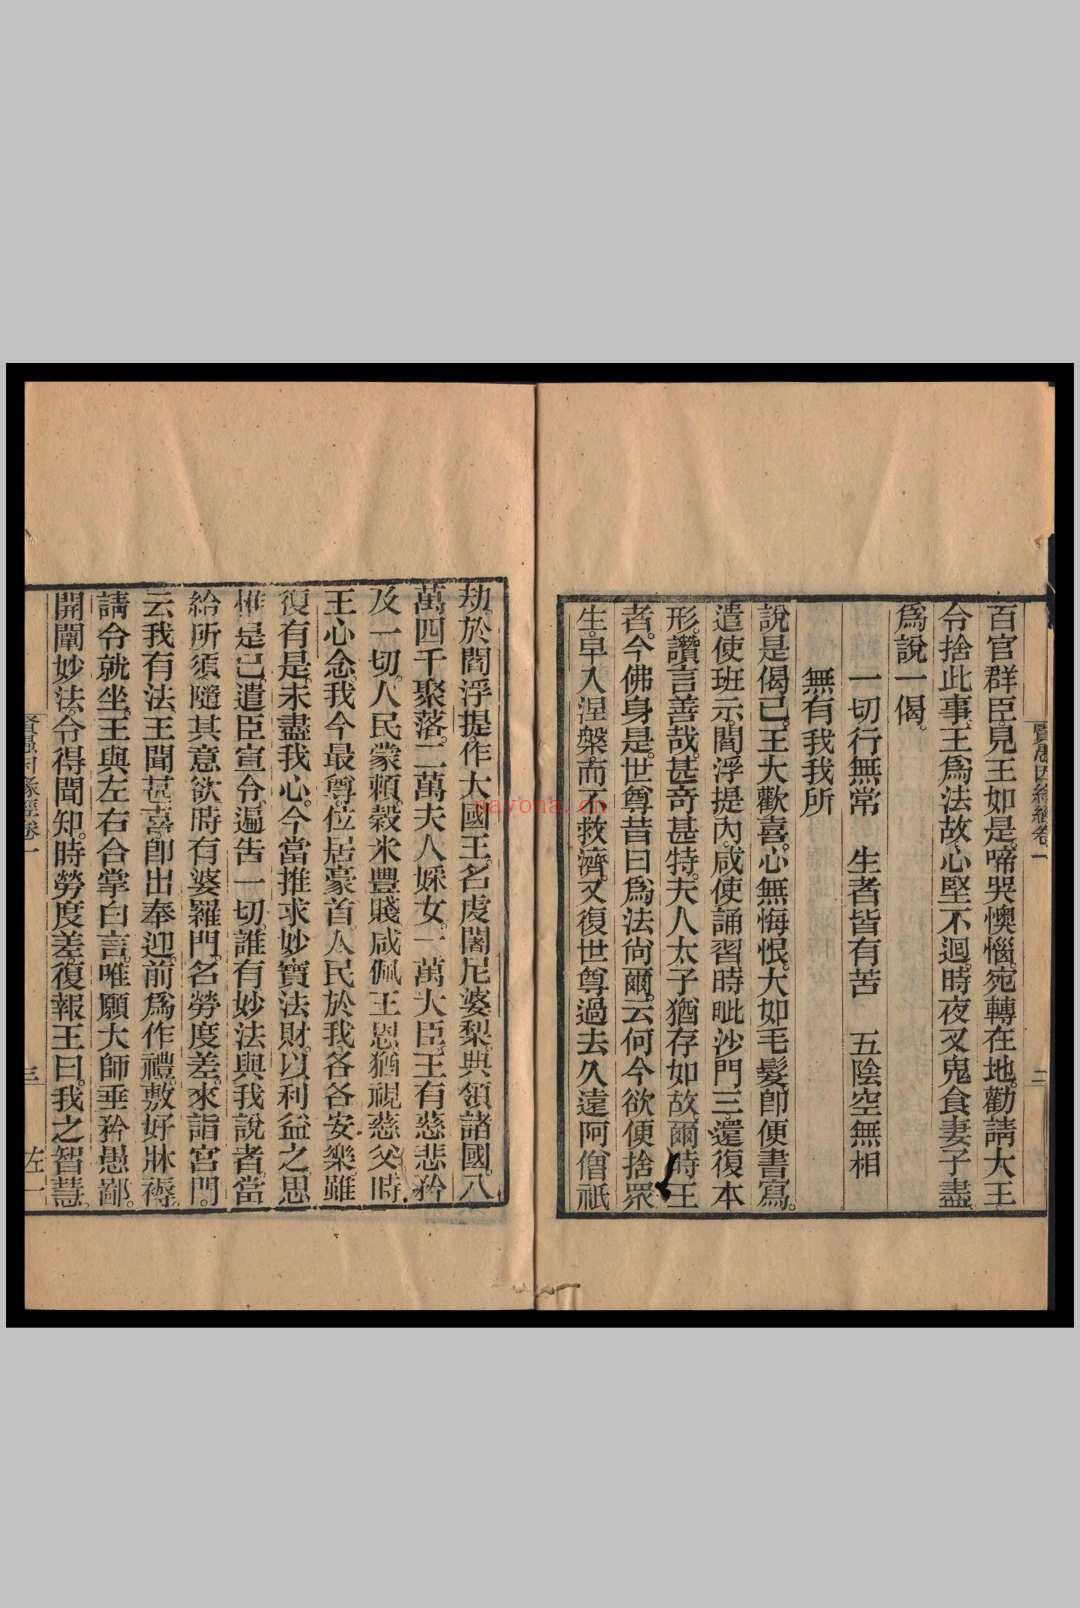 賢愚因緣經卷一
二
百官群臣。見王如是。啼哭懊惱。宛轉在地。勸請大王。
令捨此事。王爲法故。心堅不迴。時夜叉鬼。食妻子盡。
爲說一偈。
一切行無常　生者皆有苦　五陰空無相
無有我我所
說是偈已。王大歡喜。心無悔恨。大如毛髮。卽便書寫。
遣使班示。閻浮提內。咸使誦習。時毗沙門王。還復本
形。讚言善哉。甚奇甚特。夫人太子猶存如故。爾時王
者。今佛身是。世尊昔日爲法尙爾。云何今欲便捨眾
生。早入涅槃。而不救濟。又復世尊過去久遠阿僧祇
劫。於閻浮提。作大國王。名虔闍尼婆梨。典領諸國。八
萬四千聚落。二萬夫人婇女。一萬大臣。王有慈悲。矜
及一切。人民蒙賴。穀米豐賤。咸佩王恩。猶視慈父。時
王心念。我今最尊。位居豪首。人民於我各各安樂。雖
復有是。未盡我心。今當推求妙寶法財。以利益之。思
惟是已。遣臣宣令。遍告一切。誰有妙法。與我說者。當
給所須。隨其意欲。時有婆羅門。名勞度差。來詣宮門。
云我有法。王聞甚喜。卽出奉迎。前爲作禮。敷好牀褥。
請令就坐。王與左右合掌白言。唯願大師垂矜愚鄙。
開闡妙法。令得聞知。時勞度差。復報王曰。我之智慧。
賢愚因緣經卷一
三
左一
nayona.cn